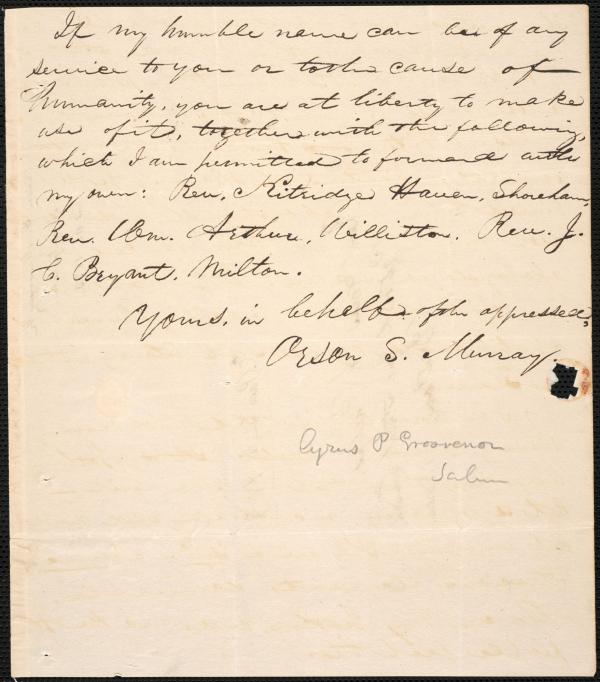 If my humble name can be of any
service to you or to the cause of
humanity, you are at liberty to make
use of it, together with the following,
which I am permitted to forward with
my own: Rev. Kitridge Haven, Shoreham,
Rev. Wm. Arthur, Williston. Rev. J.
C. Bryant. Milton.
Yours, in behalf of the oppressed,
Orson S. Murray.
Cyrus P Grosvenor
Salem